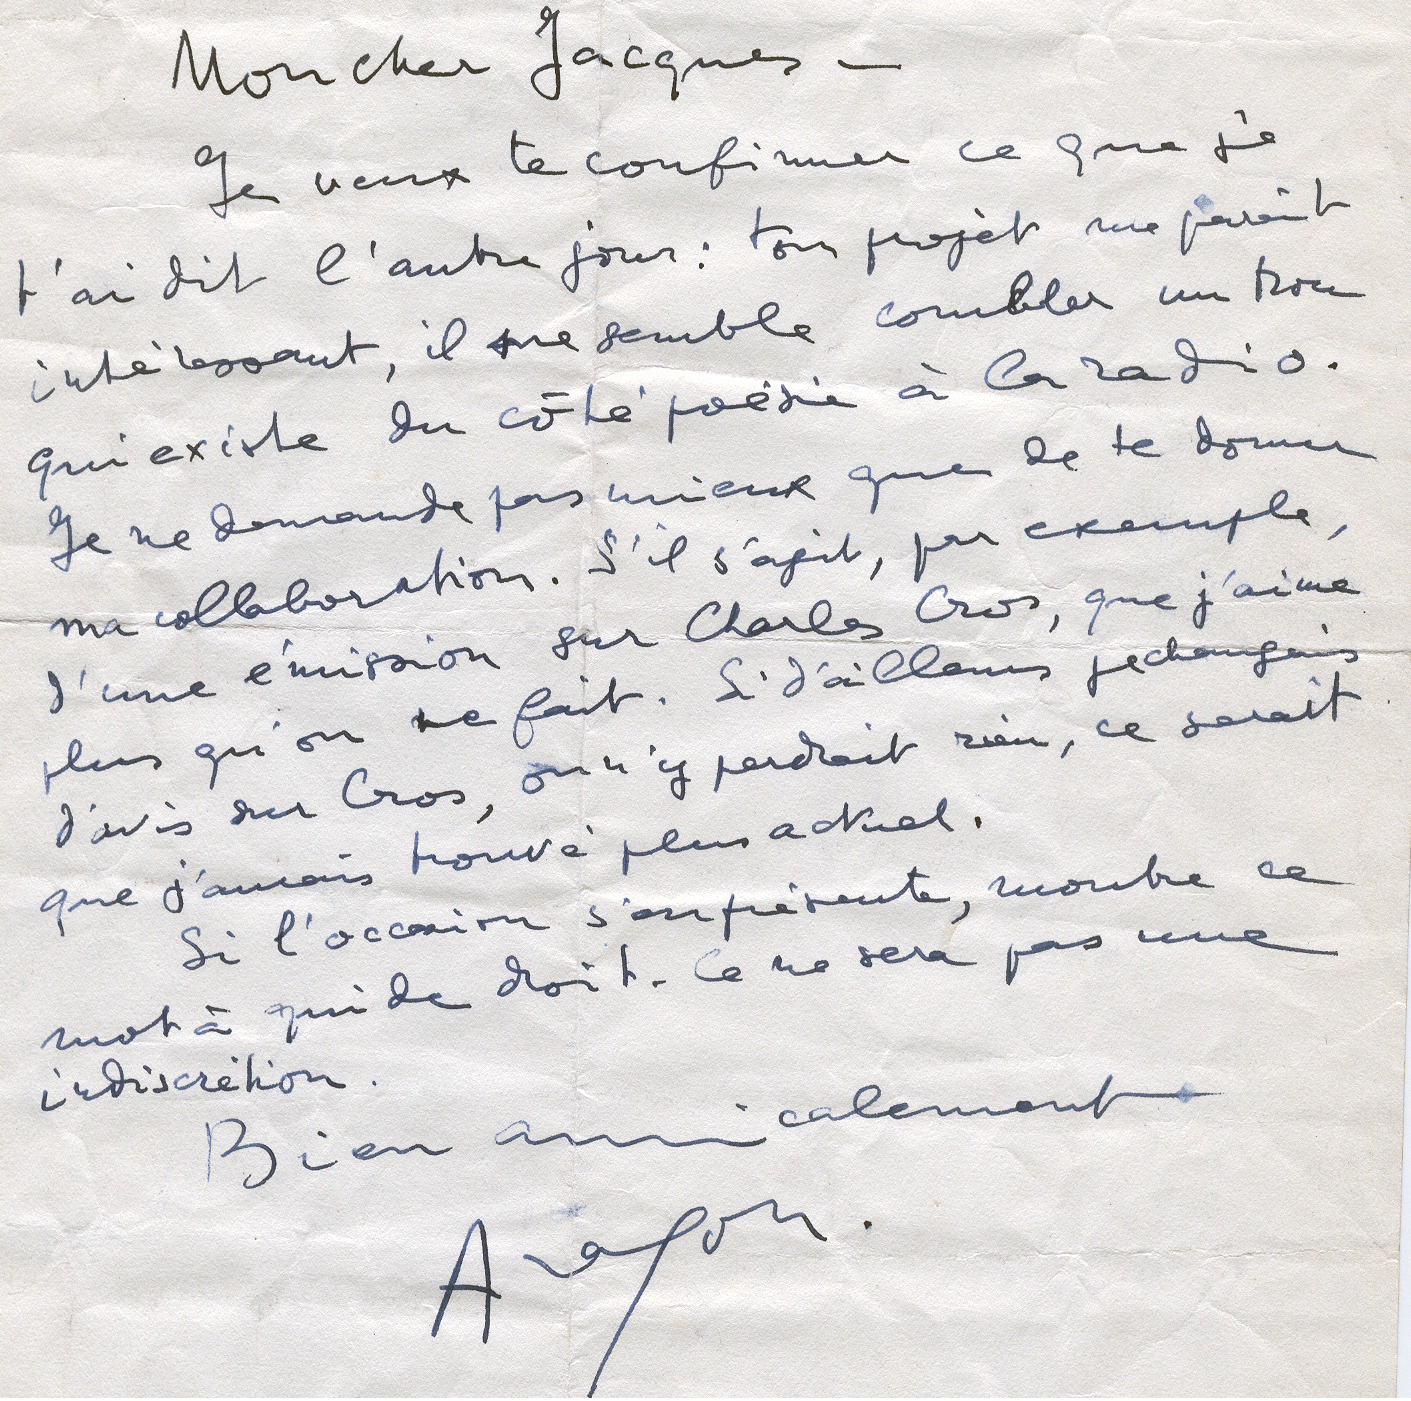 Mon cher Jacques –
Je veux te confirmer ce que je
t'ai dit l'autre jour : ton projet me paraît
intéressant, il me semble combler un trou
qui existe du côté poésie à la radio.
Je ne demande pas mieux que de te donner
ma collaboration. S'il s'agit, par exemple,
d'une émission sur Charles Cros, que j'aime
plus qu'on ne fait. Si d'ailleurs je changeais
d'avis sur Cros, on n'y perdrait rien, ce serait
que j'aurais trouvé plus actuel.
Si l'occasion s'en présente, montre ce
mot à qui de droit. Ce ne sera pas une
indiscrétion.
Bien amicalement
Aragon.